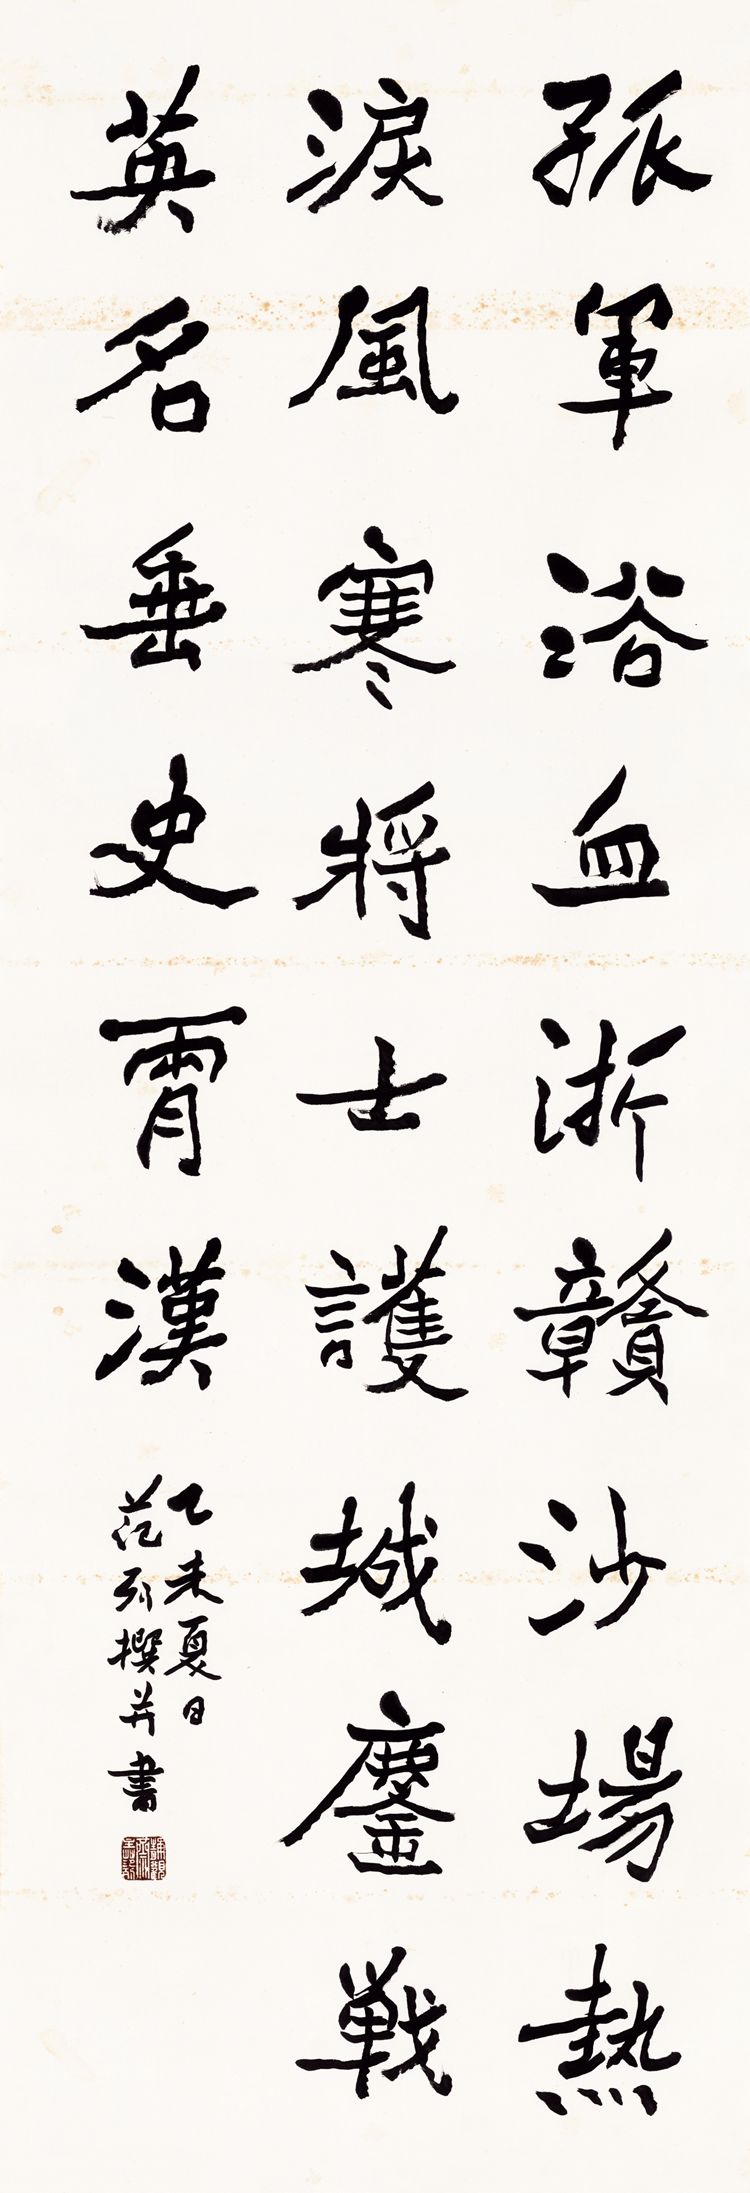 孤軍浴血浙贛沙場熱
淚風寒將士護城鏖戰
英名垂史霄漢
乙未夏日
范列撰并書